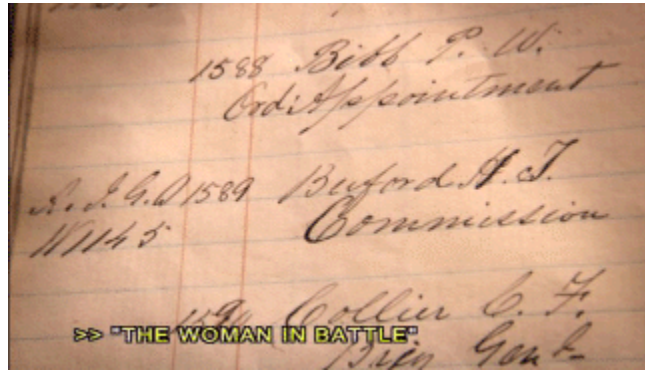 1588 Bibb P. W.
Ord: Appointment
A. I. G. O 1589 Buford H. T.
W1145 Commission
1590 Collier C. F.
>> "THE WOMAN IN BATTLE"
Brig Genl